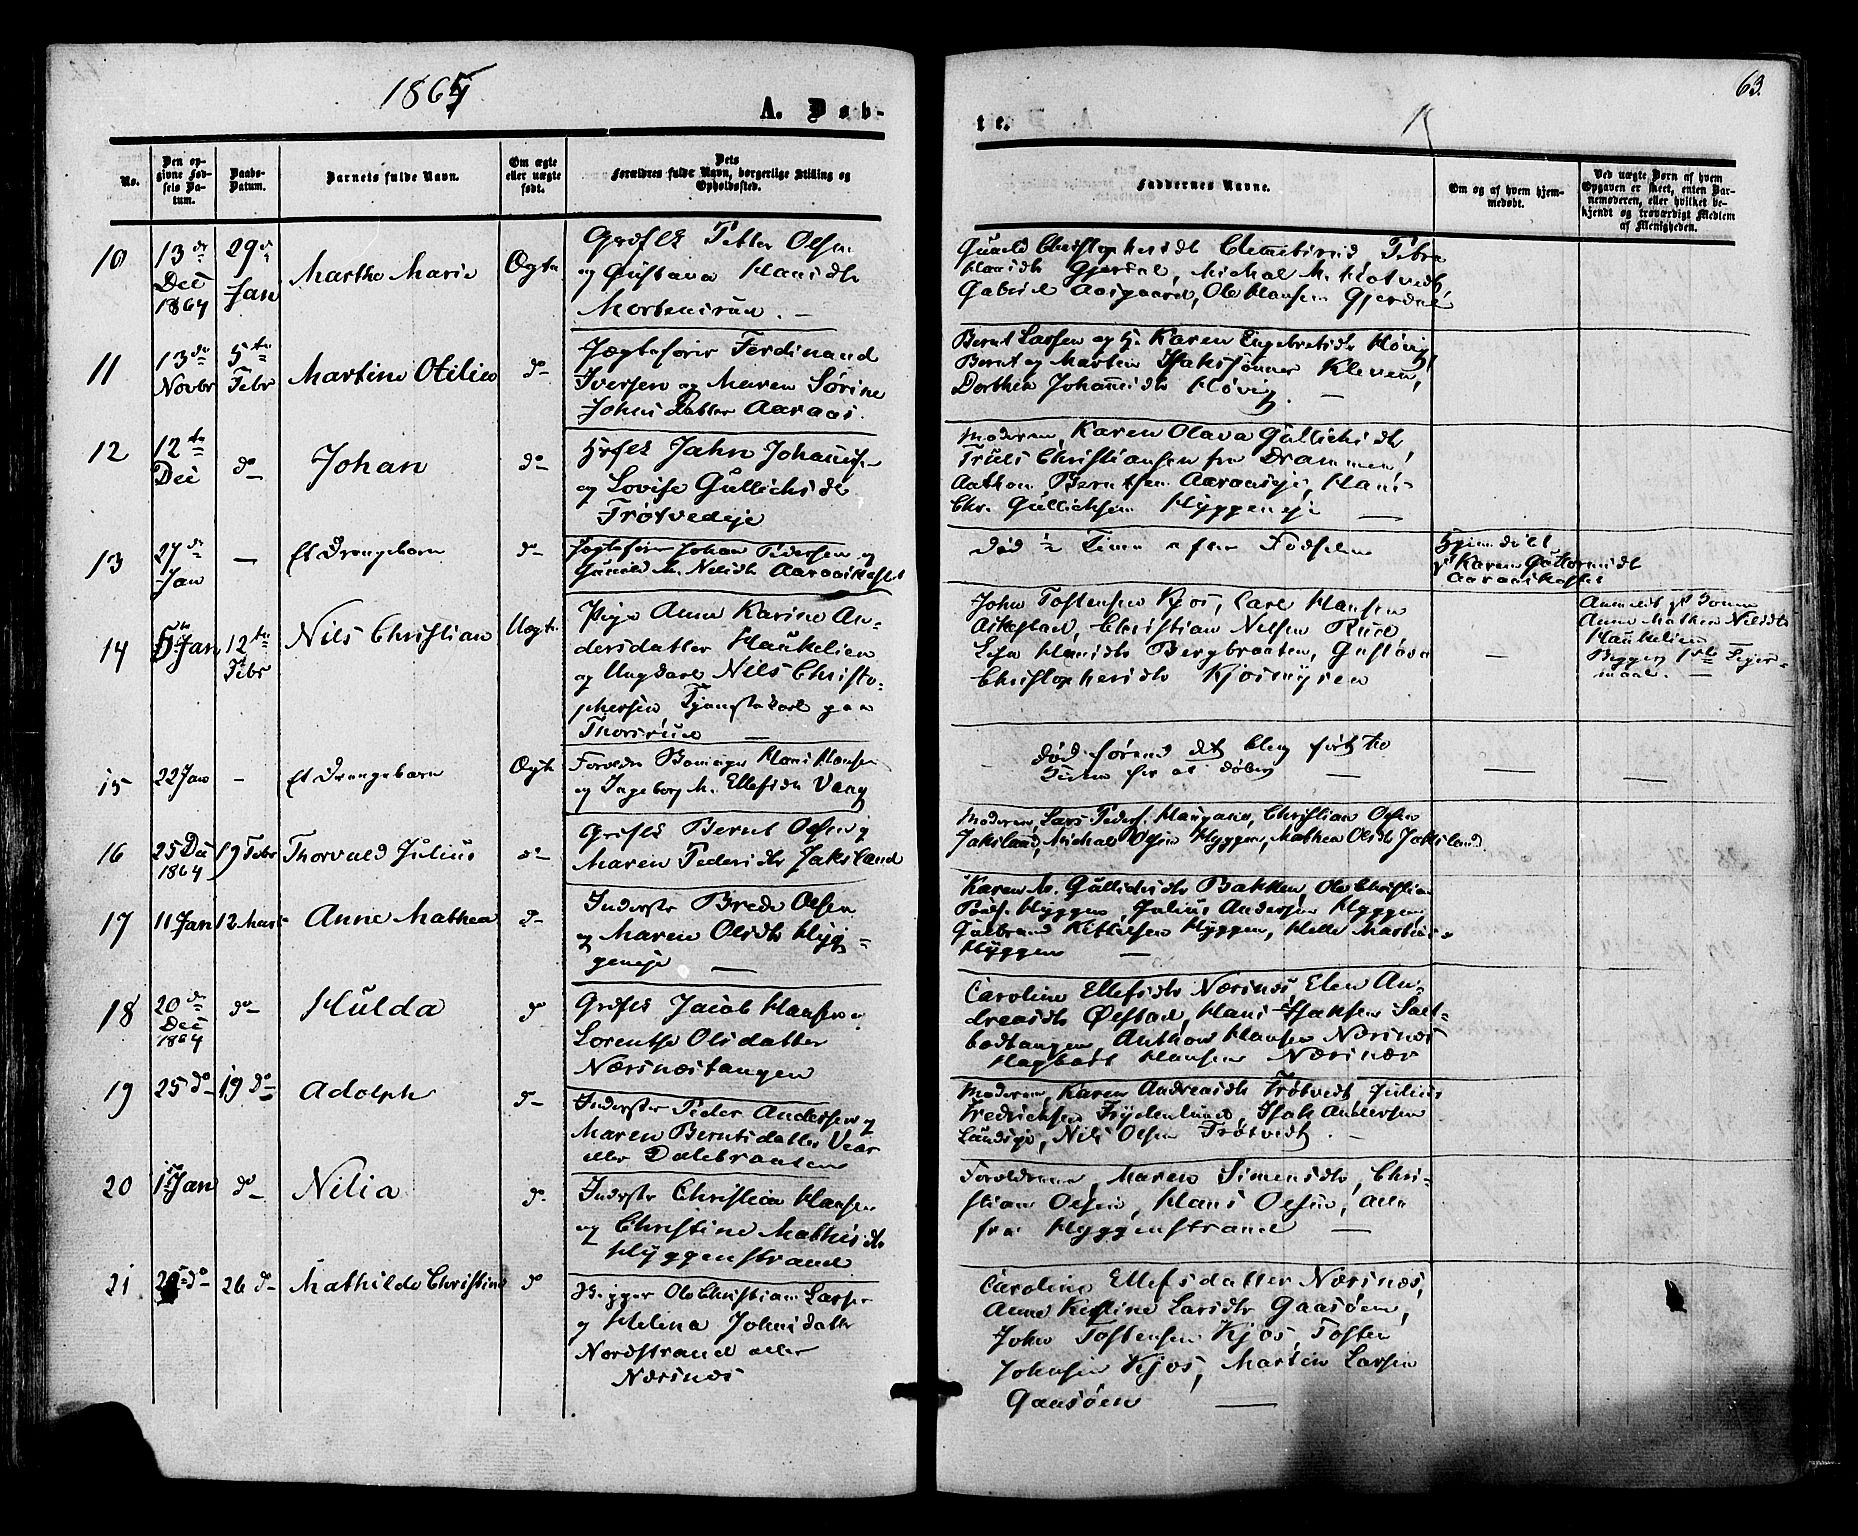 1865
A. Døb-
te.
63.
No.
Den op-
givne Fød-
sels Da-
tum.
Daabs-
Datum.
Barnets fulde Navn.
Om ægte
eller uægte
født.
Dets
Forældres fulde Navn, borgerlige Stilling og
Opholdssted.
Faddernes Navne.
Om og af hvem hjem-
medøbt.
Ved uægte Børn af hvem
Opgaven er skeet, enten Bar-
nemoderen, eller hvilket be-
kjendt og troværdigt Medlem
af Menigheden.
10
13de
Dec
1864
29de
Jan
Marthe Marie
Ægte
Grdflk Petter Olsen
og Gustava Hansdtr
Mortensrud. —
Gunild Christophersdtr
Hansdtr Gjerdal, Michal
Gabriel Aasgaard, Ole Hansen Gjerdal
11
13de
Novbr
5te
Febr
Martine Otilie
do
Jægtefører Ferdinand
Iversen og Maren Sørine
Johnsdatter Aaraas.
Bernt Larsen og H. Karen Engebretsdtr Høvig
Bernt og Martin Isaksønner Kleven,
Dorthea Johannisdtr Høvig. —
12
12te
Dec
do
Johan
do
Hrflk John Johannsen
og Lovise Gullichsdtr
Trøtvedeje
Moderen, Karen Olava Gullichsdtr
Truls Christiansen fra Drammen,
Anthon Berntsen Aaraaseje, Hans
Chr. Gullichsen Hyggeneje —
13
27de
Jan
—
Et Drengebarn
do
Jægtefører Johan Pedersen og
Gunild M. Nilsdtr Aaraaskastet
Død ½ Time efter Fødselen
Hjemdøbt
af Karen Guttormsdtr
Aaraaskastet
14
5te Jan
12te
Febr
Nils Christian
Uægte
Pige Anne Karine An-
dersdatter Haukelien
og Ungkarl Nils Christo-
phersen Tjenestekarl paa
Thorsrud —
John Tostensen Kjos, Carl Hansen
Aikestad, Christian Nilsen Rud
Lisa Hansdtr Bergbraaten, Gustava
Christophersdtr Kjosmyren
—
Anmeldt af
Anne Mathea Nilsdtr
Haukelien
Begges 1ste Leier-
maal. —
15
22 Jan
-
Et Drengebarn
Ægte
Forældre Hans Hansen
og Ingeborg M. Ellefsdtr Vang
Død førend det blev ført til
for at døbes —
—
—
16
25 Dec
1864
19 Febr
Thorvald Julius
do
Grdflk Bernt Olsen og
Maren Pedersdtr Jaksland
Moderen, Lars Peders. Haugane, Christian Olsen
Jaksland, Michal Olsen Hyggen, Mathea Olsdtr Jaksland
17
11 Jan
12 Mars
Anne Mathea
do
Inderster Brede Olsen
og Maren Olsdtr Hyg-
geneje —
Karen M. Gullichsdtr Bakken, Ole Christian
Hyggen, Julius Andersen Hyggen
Gulbrand Kittelsen Hyggen, Helle
Hyggen —
18
20de
Dec
1864
do
Hulda
do
Grdflk Jacob Hansen og
Lorentse Olsdatter
Nærsnæstangen
Caroline Ellefsdtr Nærsnæs, Elen An-
dreasdtr Øfstad, Hans Isaksen Salt-
bodtangen, Anthon Hansen Nærsnæs
Hagbart Hansen Nærsnæs
19
25 do
19 do
Adolph
do
Inderster Peder Andersen og
Maren Berntsdatter
eller Dalebraaten
Moderen, Karen Andreasdtr Trøtvedt, Julius
Fredrichsen Frydenlund, Isak Andersen
Lundseje, Nils Olsen Trøtvedt. —
20
1ste Jan
do
Nilia
do
Inderster Christian Hansen
og Christine Mathisdtr
Hyggenstrand
Forældrene, Maren Simensdtr, Chri-
stian Olsen, Hans Olsen, alle
fra Hyggenstrand —
21
26 do
Mathilde Christine
do
Bygger Ole Christian Larsen
og Helena Johnsdatter
Nordstrand eller
Nærsnæs
Caroline Ellefsdatter Nærsnæs,
Anne Kirstine Larsdtr Gaasøen,
John Tostensen Kjos, Tosten
Johnsen Kjos, Martin Larsen
Gaasøen —